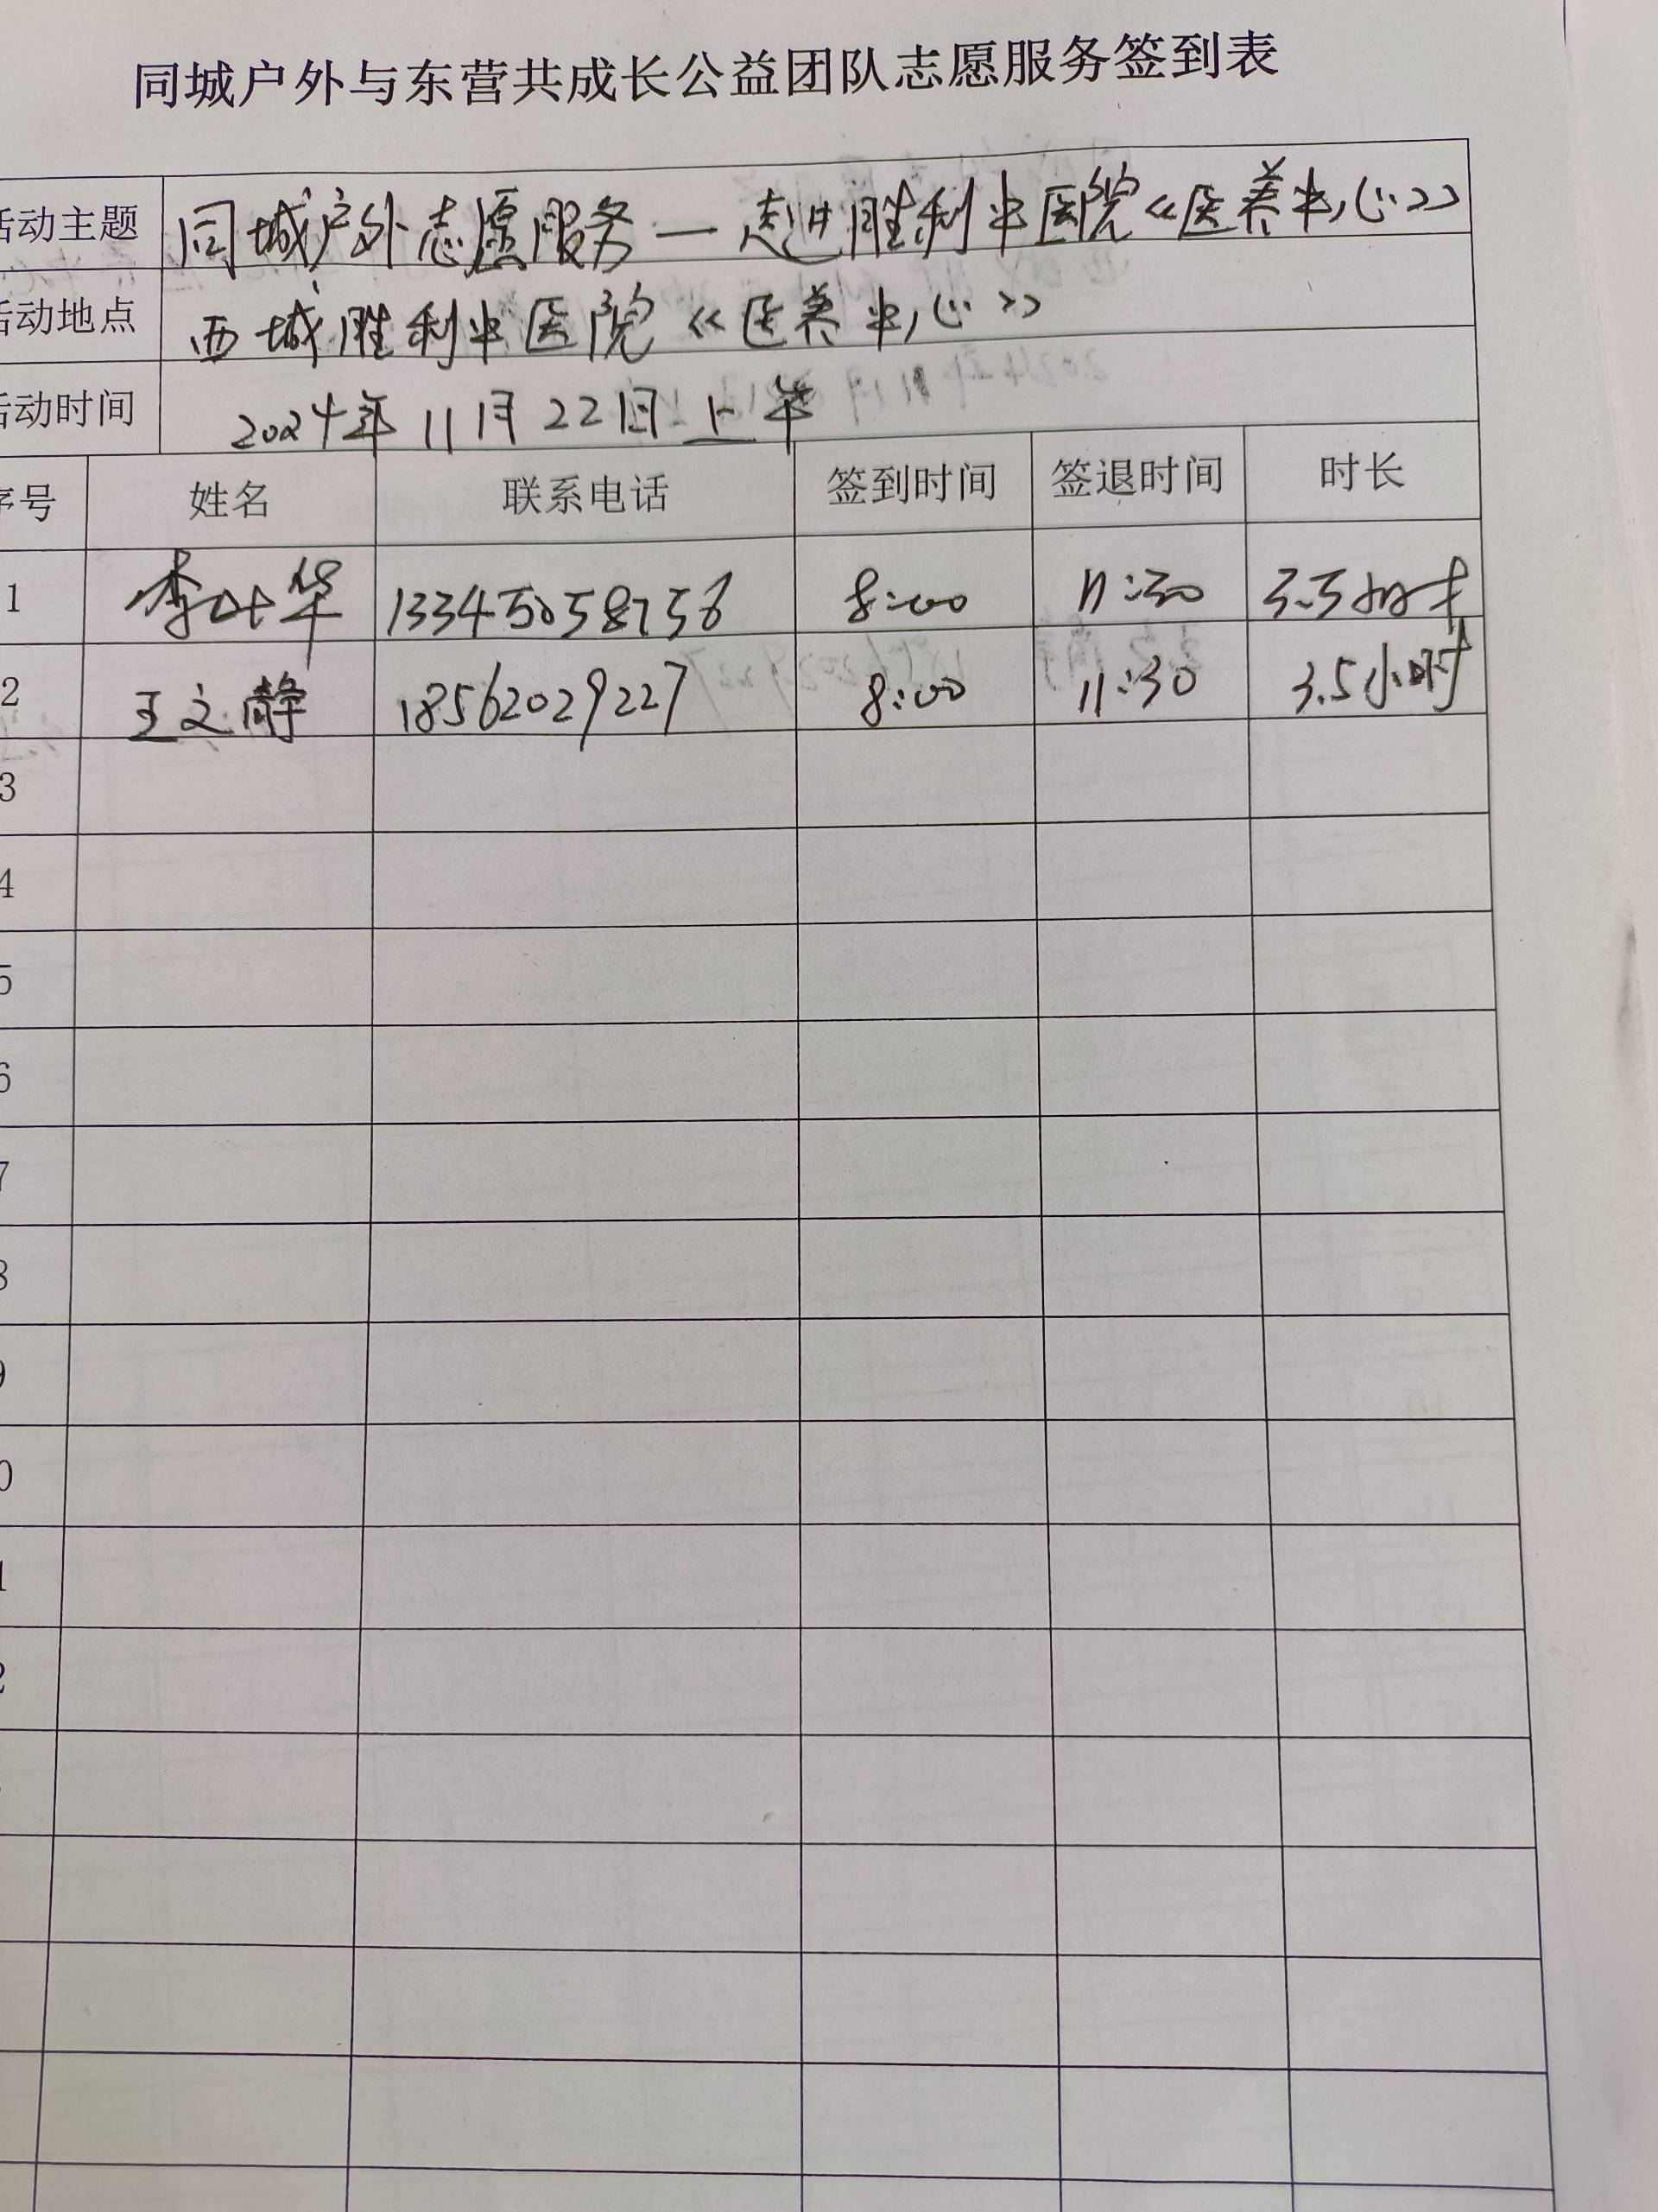 同城户外与东营共成长公益团队志愿服务签到表
活动主题 同城户外志愿服务—走进胜利中医院《医养中心》
活动地点 西城胜利中医院《医养中心》
活动时间 2024年11月22日上午
序号 姓名 联系电话 签到时间 签退时间 时长
1 李叶华 13345058756 8:00 11:30 3.5小时
2 王文静 18562029227 8:00 11:30 3.5小时
3
4
5
6
7
8
9
0
1
2